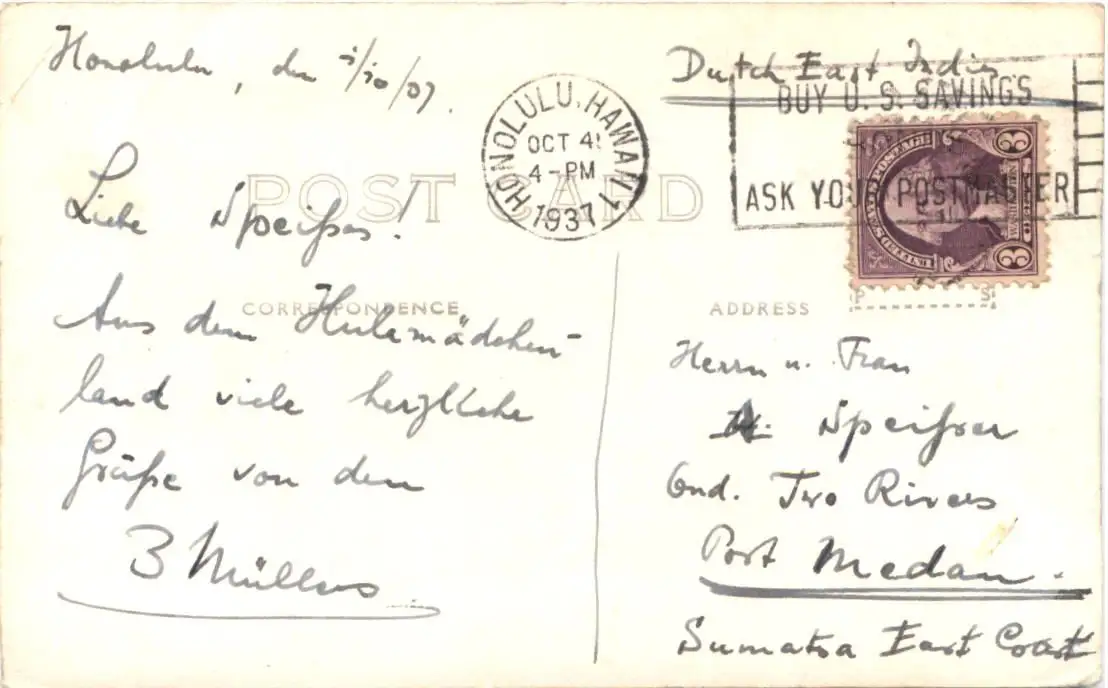 Honolulu, den 3/10/37.
Liebe Speißers!
Aus dem Hulamädchen-
land viele herzliche
Grüße von den
3 Müllers
POST CARD
CORRESPONDENCE
HONOLULU, HAWAII 1
OCT 4
4-PM
1937
Dutch East Indies
BUY U.S. SAVINGS
ASK YOUR POSTMASTER
UNITED STATES POSTAGE
WASHINGTON
3 3
ADDRESS
P S
Herrn u. Frau
Speißer
Ond. Two Rivers
Post Medan.
Sumatra East Coast